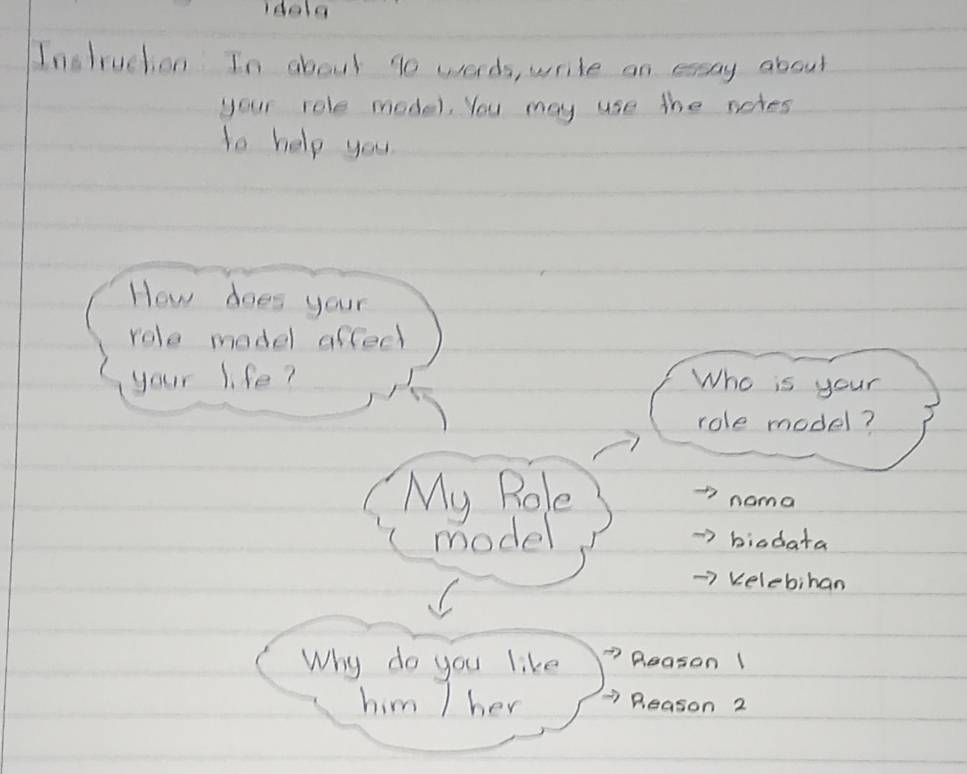 idola
Instruction: In about 90 words, write an essay about
your role model. You may use the notes
to help you.
How does your
role model affect
your life?
Who is your
role model?
My Role
model
→ nama
→ biodata
→ kelebihan
Why do you like
him / her
→ Reason 1
→ Reason 2